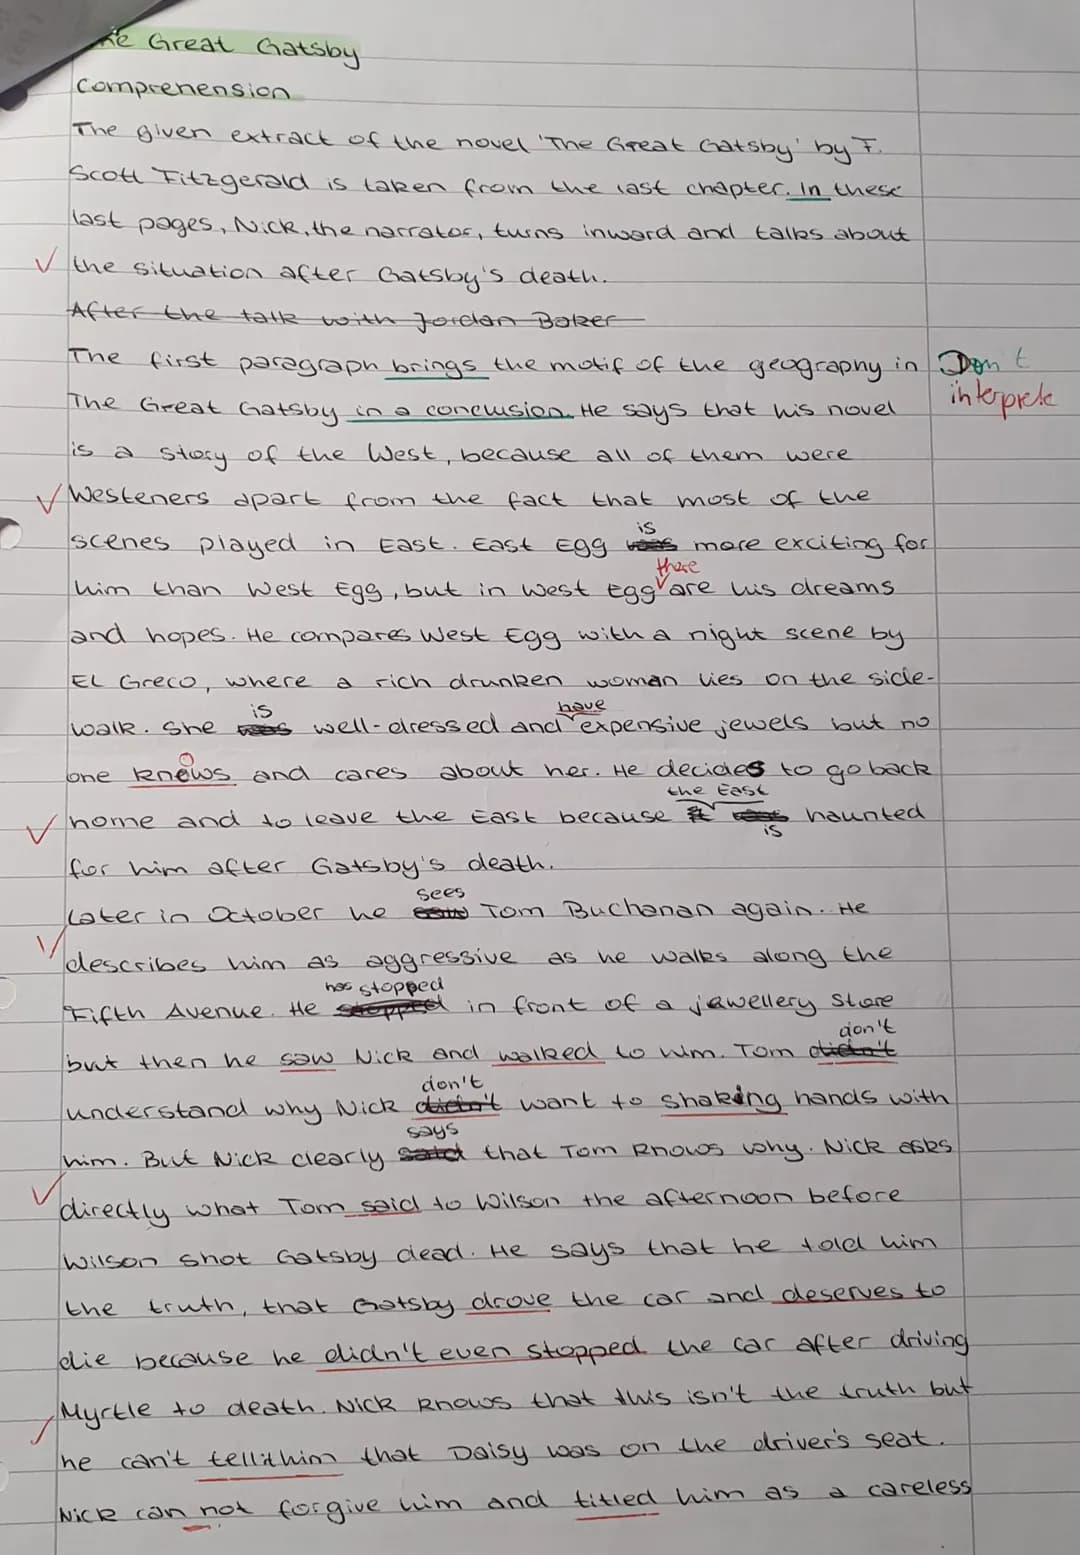 Great Gatsby
Comprehension
The given extract of the novel 'The Great Gatsby' by F.
Scott Fitzgerald is taken from the last chapter. In these
last pages, Nick, the narrator, turns inward and talks about
the situation after Gatsby's death.
After the talk with Jordan Baker
The first paragraph brings the motif of the geography in Don't
The Great Gatsby in a conclusion. He says that his novel interprete
is a story of the West, because all of them were
Westeners apart from the fact that most of the
is
scenes played in East. East Egg was more exciting for
there
him than West Egg, but in West Egg are his dreams
and hopes. He compares West Egg with a night scene by
El Greco, where a rich drunken woman lies on the side-
is have
walk. She was well-dressed and expensive jewels but no
one knows and cares about her. He decides to go back
the East
home and to leave the East because it was haunted
is
for him after Gatsby's death.
sees
Later in October he saw Tom Buchanan again. He
describes him as aggressive as he walks along the
has stopped
Fifth Avenue. He stopped in front of a jewellery store
don't
but then he saw Nick and walked to him. Tom didn't
don't
understand why Nick didn't want to shaking hands with
says
him. But Nick clearly said that Tom knows why. Nick asks
directly what Tom said to Wilson the afternoon before
Wilson shot Gatsby dead. He says that he told him
the truth, that Gatsby drove the car and deserves to
die because he didn't even stopped the car after driving
Myrtle to death. Nick knows that this isn't the truth but
he can't tell him that Daisy was on the driver's seat.
Nick can not forgive him and titled him as a careless